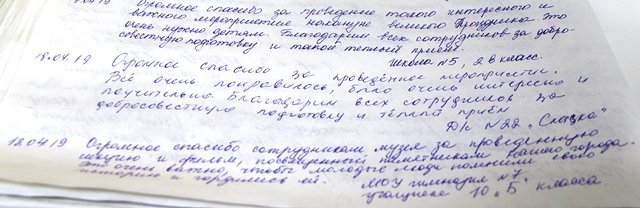 Огромное спасибо за проведение такого интересного и
важного мероприятие накануне великого Праздника. Это
очень нужно детям. Благодарим всех сотрудников за добро-
совестную подготовку и такой теплый приём.
Школа №5, 2 в класс.
18.04.19 Огромное спасибо за проведённое мероприятие.
Всё очень понравилось, было очень интересно и
поучительно. Благодарим всех сотрудников за
добросовестную подготовку и тёплый приём
Д/с №22 „Сказка"
18.04.19 Огромное спасибо сотрудникам музея за проведенную
лекцию и фильм, посвященный памятникам нашего города.
Это очень важно, чтобы молодые люди помнили свою
историю и гордились ей. МОУ гимназия №7
учащиеся 10 „Б" класса.